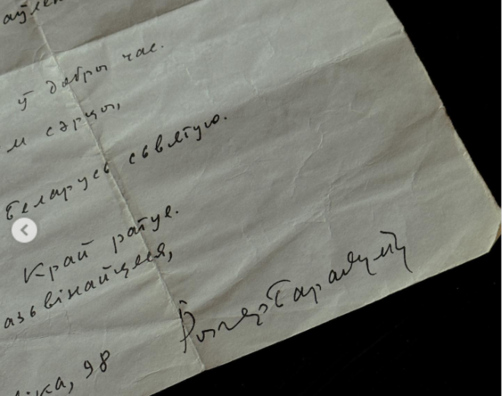 ў добры час.
м сэрцы,
Беларусь сьвятую.
Край ратуе.
азьвінайцеся,
Рыгор Барадулін
іка, 98